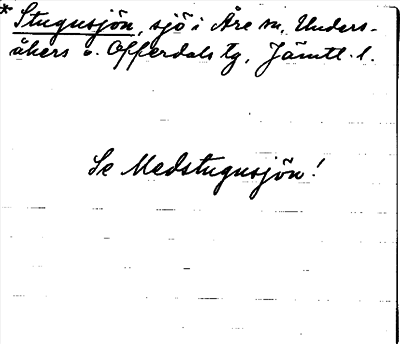 * Stugusjön, sjö i Åre sn, Under-
såkers o. Offerdals tg, Jämtl. l.
Se Medstugusjön!